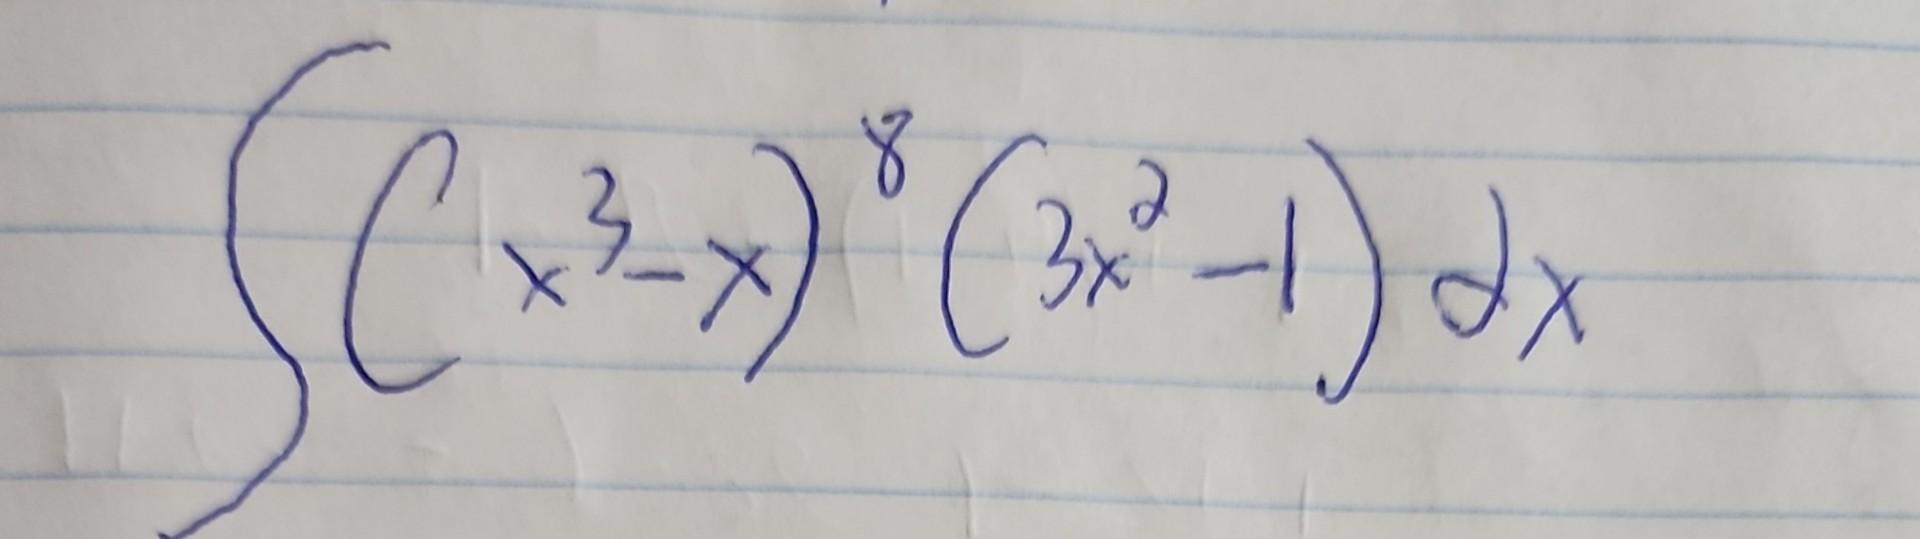 ∫(x³-x)⁸(3x²-1)dx